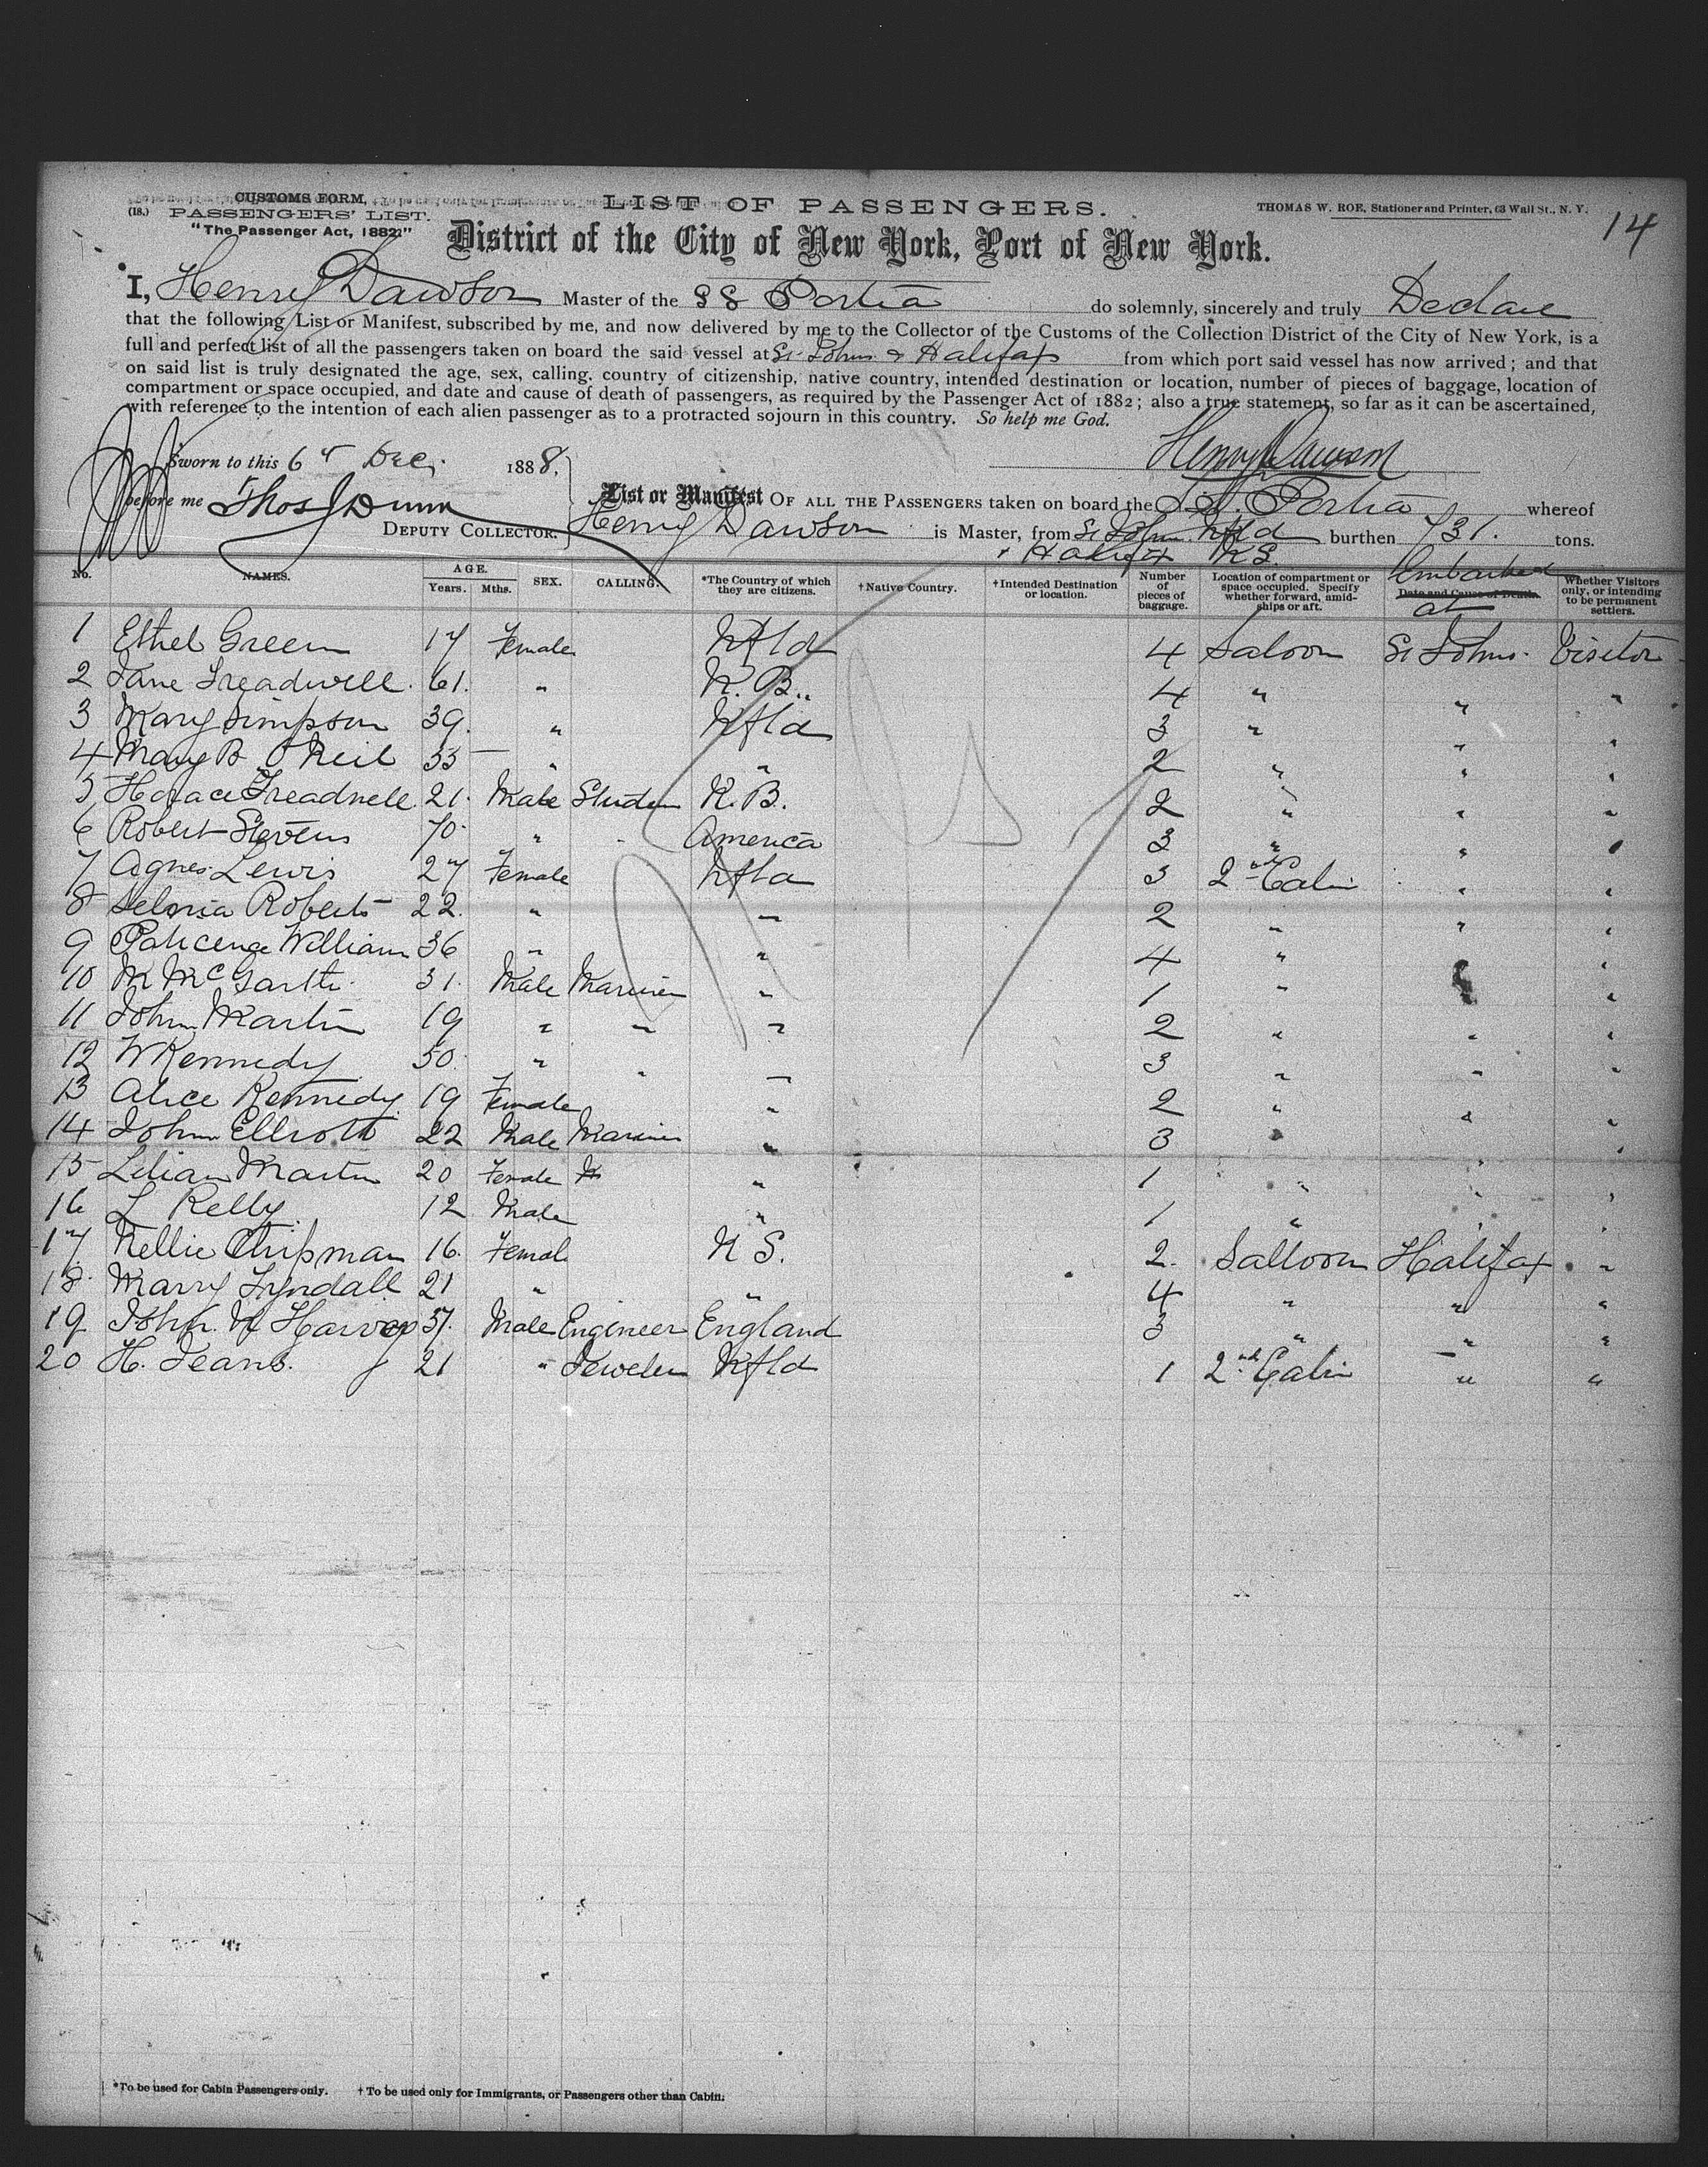 CUSTOMS FORM,
(18.) PASSENGERS' LIST.
"The Passenger Act, 1882."
LIST OF PASSENGERS.
THOMAS W. ROE, Stationer and Printer, 63 Wall St., N. Y.
14
District of the City of New York, Port of New York.
I, Henry Dawson Master of the SS Portia do solemnly, sincerely and truly Declare
that the following List or Manifest, subscribed by me, and now delivered by me to the Collector of the Customs of the Collection District of the City of New York, is a
full and perfect list of all the passengers taken on board the said vessel at St Johns & Halifax from which port said vessel has now arrived; and that
on said list is truly designated the age, sex, calling, country of citizenship, native country, intended destination or location, number of pieces of baggage, location of
compartment or space occupied, and date and cause of death of passengers, as required by the Passenger Act of 1882; also a true statement, so far as it can be ascertained,
with reference to the intention of each alien passenger as to a protracted sojourn in this country. So help me God.
Sworn to this 6th Dec. 1888.
Henry Dawson
before me Thos J Dunn
DEPUTY COLLECTOR.
List or Manifest OF ALL THE PASSENGERS taken on board the S.S. Portia whereof
Henry Dawson is Master, from St Johns Nfld burthen 731. tons.
& Halifax NS.
No. NAMES. AGE. Years. Mths. SEX. CALLING. *The Country of which they are citizens. †Native Country. †Intended Destination or location. Number of pieces of baggage. Location of compartment or space occupied. Specify whether forward, amidships or aft. Date and Cause of Death. Embarked at Whether Visitors only, or intending to be permanent settlers.
1 Ethel Green 17 Female Nfld 4 Saloon St Johns. Visitor
2 Jane Treadwell. 61. " N. B. 4 " " "
3 Mary Simpson 39. " Nfld 3 " " "
4 Mary B O'Neil 35 " " 2 " " "
5 Horace Treadwell. 21. Male Studen N. B. 2 " " "
6 Robert Stevens 70. " America 3 " " "
7 Agnes Lewis 27 Female Nfld 3 2nd Cabin " "
8 Roberts 22. " " 2 " " "
9 William 36 " " 4 " " "
10 M 31. Male Mariner " 1 " " "
11 John Martin 19 " " " 2 " " "
12 W Kennedy 50. " " " 3 " " "
13 Alice Kennedy 19 Female " 2 " " "
14 John Elliott 22 Male Mariner " 3 " " "
15 Lilian Martin 20 Female " 1 " " "
16 L Kelly 12 Male " 1 " " "
17 Nellie Chipman 16. Femal N S. 2. Salloon Halifax "
18. Marry Tyndall 21 " " 4 " " "
19 John W Harvey 37. Male Engineer England 3 " " "
20 H. Jeans. 21 " Jeweler Nfld 1 2nd Cabin " "
*To be used for Cabin Passengers only. †To be used only for Immigrants, or Passengers other than Cabin.